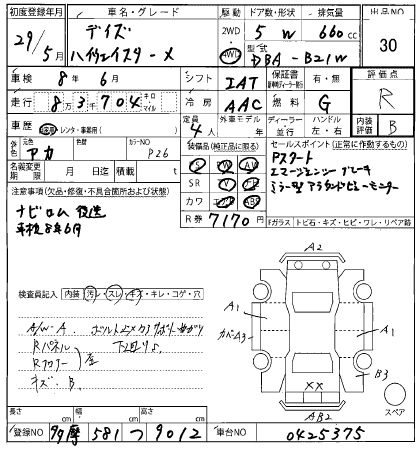 初度登録年月 車名・グレード 駆動 ドア数・形状 排気量 出品NO
29/5月 デイズ 2WD 4WD 5 W 660cc 30
ハイウェイスター - X 型式 DBA - B21W
車検 8年 6月 シフト IAT 保証書 有・無 評価点 R
走行 83704 キロ・マイル 冷房 AAC 燃料 G
車歴 自家用 レンタ・事業用( ) 定員 4人 外車モデル 年 ディーラー 並行 ハンドル 左・右 内装評価 B
外色 元色 アカ 色替 カラーNO P26 装備品(純正品に限る) セールスポイント(正常に作動するもの)
名義変更期限 月 日迄 積載 t
Pスタート
エマージェンシーブレーキ
ミラー型アラウンドビューモニター
注意事項(欠品・修復・不具合箇所および状態)
SR TV ナビ
カワ エアB
R券 7170円
Fガラス トビ石・キズ・ヒビ・ワレ・リペア跡
ナビロム 後送
車検8年6月
検査員記入 内装 汚レ・スレ・キズ・キレ・コゲ・穴
A/W・A
下回りS
Rパネル
Rフロアー
キズ・B
A2
A1
カバーA3
A1
B3
XX
AB2
スペア
長さ cm 幅 cm 高さ cm
登録NO 多摩 581 つ 9012 車台NO 0425375